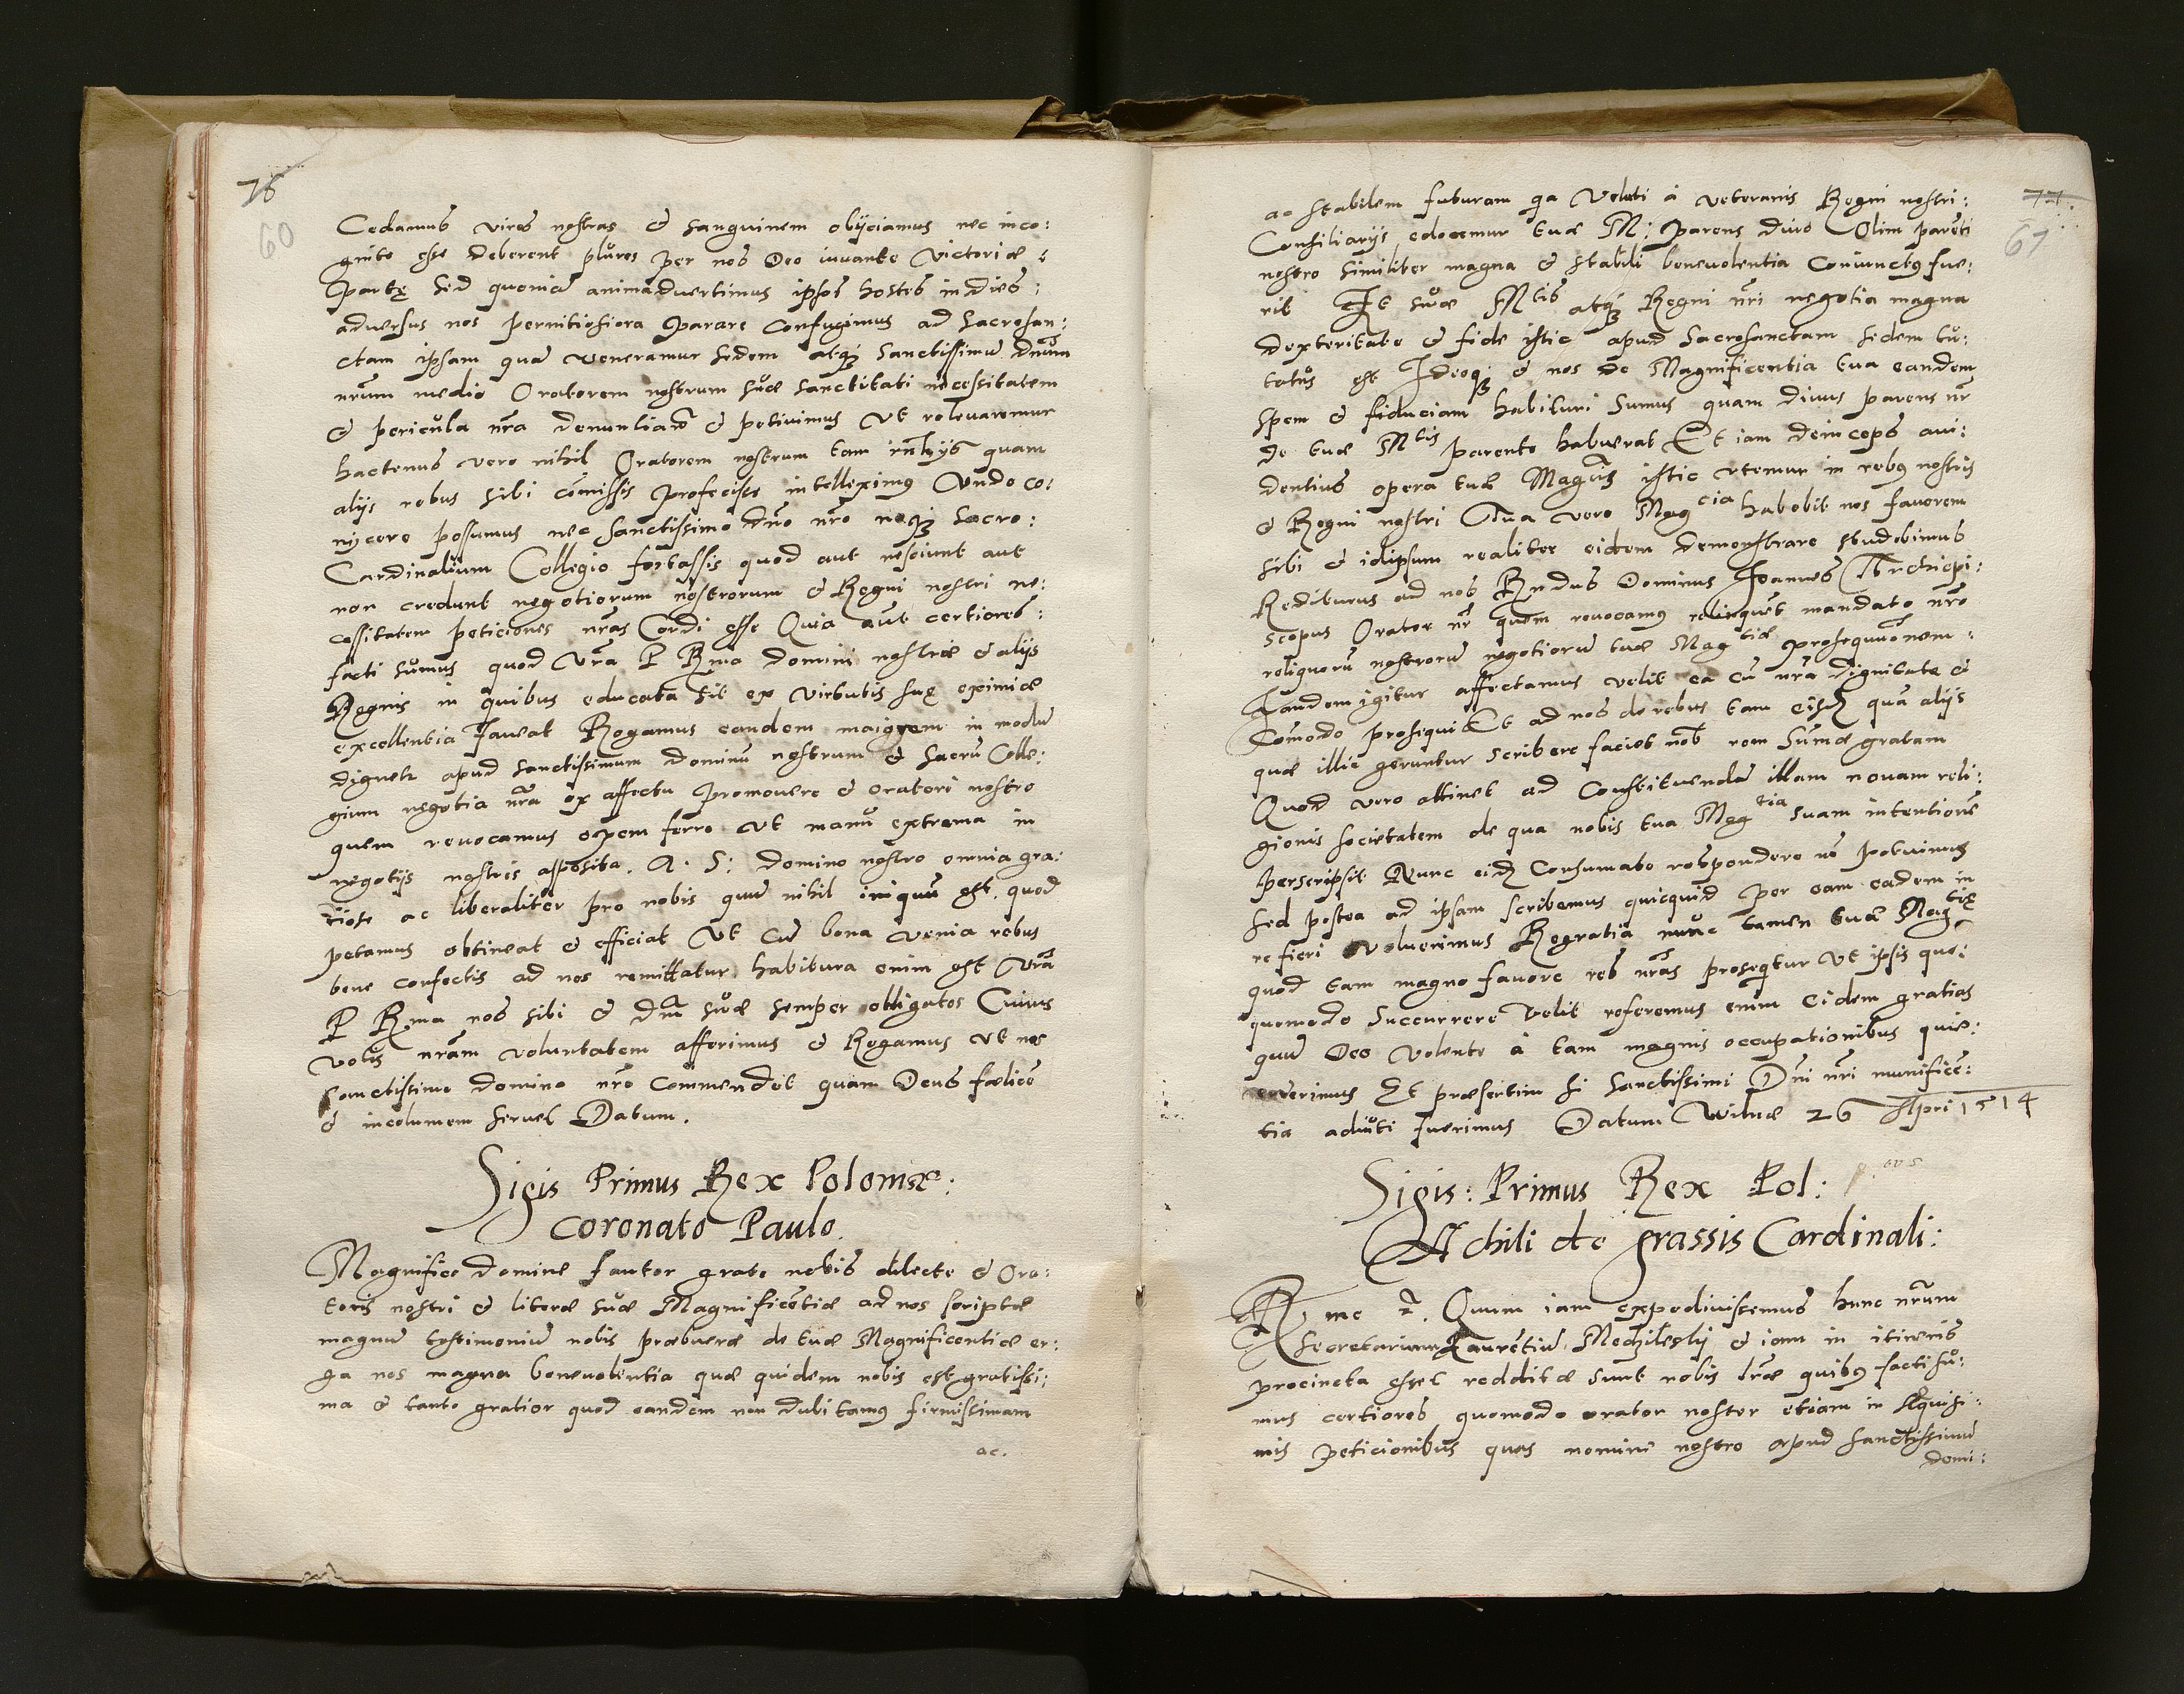 76
60
Cedamus vires nostras & sanguinem obÿciamus nec inco:
gnite esse deberent plures per nos Deo iuuante Victoriæ :
partę Sed quoniā animaduertimus ipsos hostes indies :
aduersus nos pernitiosiora parare Confugimus ad Sacrosan:
ctam ipsam quā veneramur Sedem atq3 Sanctissimū dnūm
nrūm medio Oratorem nostrum suæ Sanctitati necessitatem
& pericula nrā & petiuimus Vt releuaremur
hactenus vero nihil Oratorem nostrum tam quam
alijs rebus sibi cōmissis profecisse intelleximus Vnde co:
nÿcere possumus nec Sanctissimo dnō nrō neq3 Sacro :
Cardinalium Collegio fortassis quod aut nesciunt aut
non credunt negotiorum nostrorum & Regni nostri ne:
cessitatem peticiones nrās Cordi esse Quia aut certiores :
facti sumus quod Vrā P Rma domini nostriæ & alijs
Regnis in quibus educata sit ex Virtutis suę eximiæ
excellentia faueat Rogamus eandem maiorem in modū
apud sanctissimum dominū nostrum & Sacrū Colle:
gium negotia nrā ex affectu promouere & oratori nostro
quem reuocamus opem ferre Vt manu extrema in
negotijs nostris apposita. A. S: domino nostro omnia gra:
tiose ac liberaliter pro nobis quū nihil iniquū est quod
petamus obtineat & efficiat Vt cū bona venia rebus
bene confectis ad nos remittatur habitura enim est Vrā
P Rma nos sibi & suæ semper obligatos Cuius
votis nrām voluntatem afferimus & Rogamus Vt nos
Sanctissimo domino nrō Commendet quam Deus fœlicē
& incolumem seruet Datum.
Sigis Primus Rex Poloniæ:
coronato Paulo.
Magnifice domine fautor grate nobis dilecte & Ora:
toris nostri & literæ suæ Magnificētiæ ad nos scriptæ
magnū testimoniū nobis præbuere de tuæ Magnificentiæ er:
ga nos magna beneuolentia quæ quidem nobis est gratissi:
ma & tanto gratior quod eandem non dubitamus firmissimam
ac.
77.
67
ac stabilem futuram qa Veluti à veteranis Regni nostri :
Consiliarijs edocemur tuæ M: parens diuo Olim parēti
nostro similiter magna & stabili beneuolentia Coniunctus fue:
rit Et suæ Mtis atq3 Regni nrī negotia magna
dexteritate & fide istic apud Sacrosanctam sedem tu:
tatus est Ideoq3 & nos de Magnificentia tua eandem
spem & fiduciam habituri sumus quam diuus parens nr̄
de tuæ Mtis parente habuerat Et iam deinceps aui:
dentius opera tuæ istic vtemur in rebus nostris
& Regni nostri Tua vero Magcia habebit nos fauorem
sibi & idipsum realiter eidem demonstrare studebimus
Rediturus ad nos Rndus Dominus Joannes Archiepi:
scopus Orator nr̄ quem reuocamus relinquet mandato nrō
reliquorū nostrorū negotiorū tuæ Magtiæ :
Eandem igitur affectamus velit ea cū nrā dignitate &
Comodo prosequi Et ad nos de rebus tam quā alijs
quæ illic geruntur scribere faciet nob̄ rem Sūmæ gratam
Quod vero attinet ad Constituendā illam nouam reli:
gionis societatem de qua nobis tua Magtia suam intentionē
perscripsit Nunc Consumate respondere nō potuimus
Sed postea ad ipsam scribemus quicquid per eam eadem in
re fieri voluerimus Regratiā nūc tamen tuæ Magtię
quod tam magno fauore res nrās proseqtur Vt ipsis quo:
quomodo Succurrere Velit referemus enim Eidem gratias
quū Deo Volente à tam magnis occupationibus quie:
uerimus Et præsertim si Sanctissimi Dni nri munificē:
tia adiuti fuerimus Datum Wilnæ 26 Apri 1514
Sigis: Primus Rex Pol:
Achili de grassis Cardinali:
R me Quum iam expediuissemus hunc nrūm
Secretarium Laurētiū & iam in itineris
procinctu esset redditæ sunt nobis lræ quibus facti su:
mus certiores quomodo orator noster etiam in
mis peticionibus quas nomine nostro apud sanctissimū
domi: